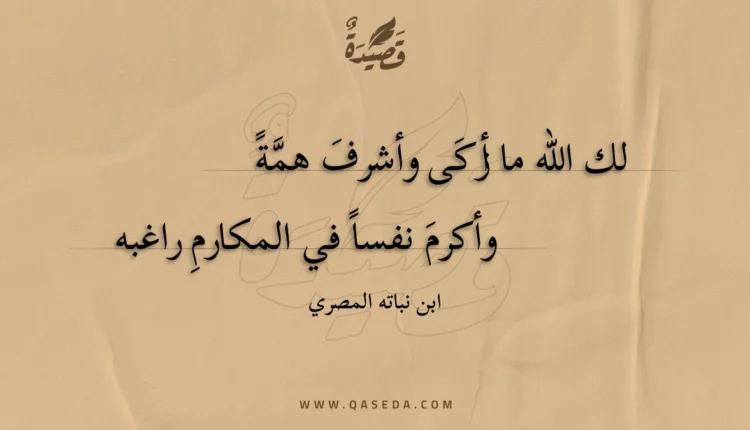 قَصِيدَةٌ
لك الله ما أزكَى وأشرفَ همَّةً
وأكرمَ نفساً في المكارمِ راغبه
ابن نباته المصري
WWW.QASEDA.COM